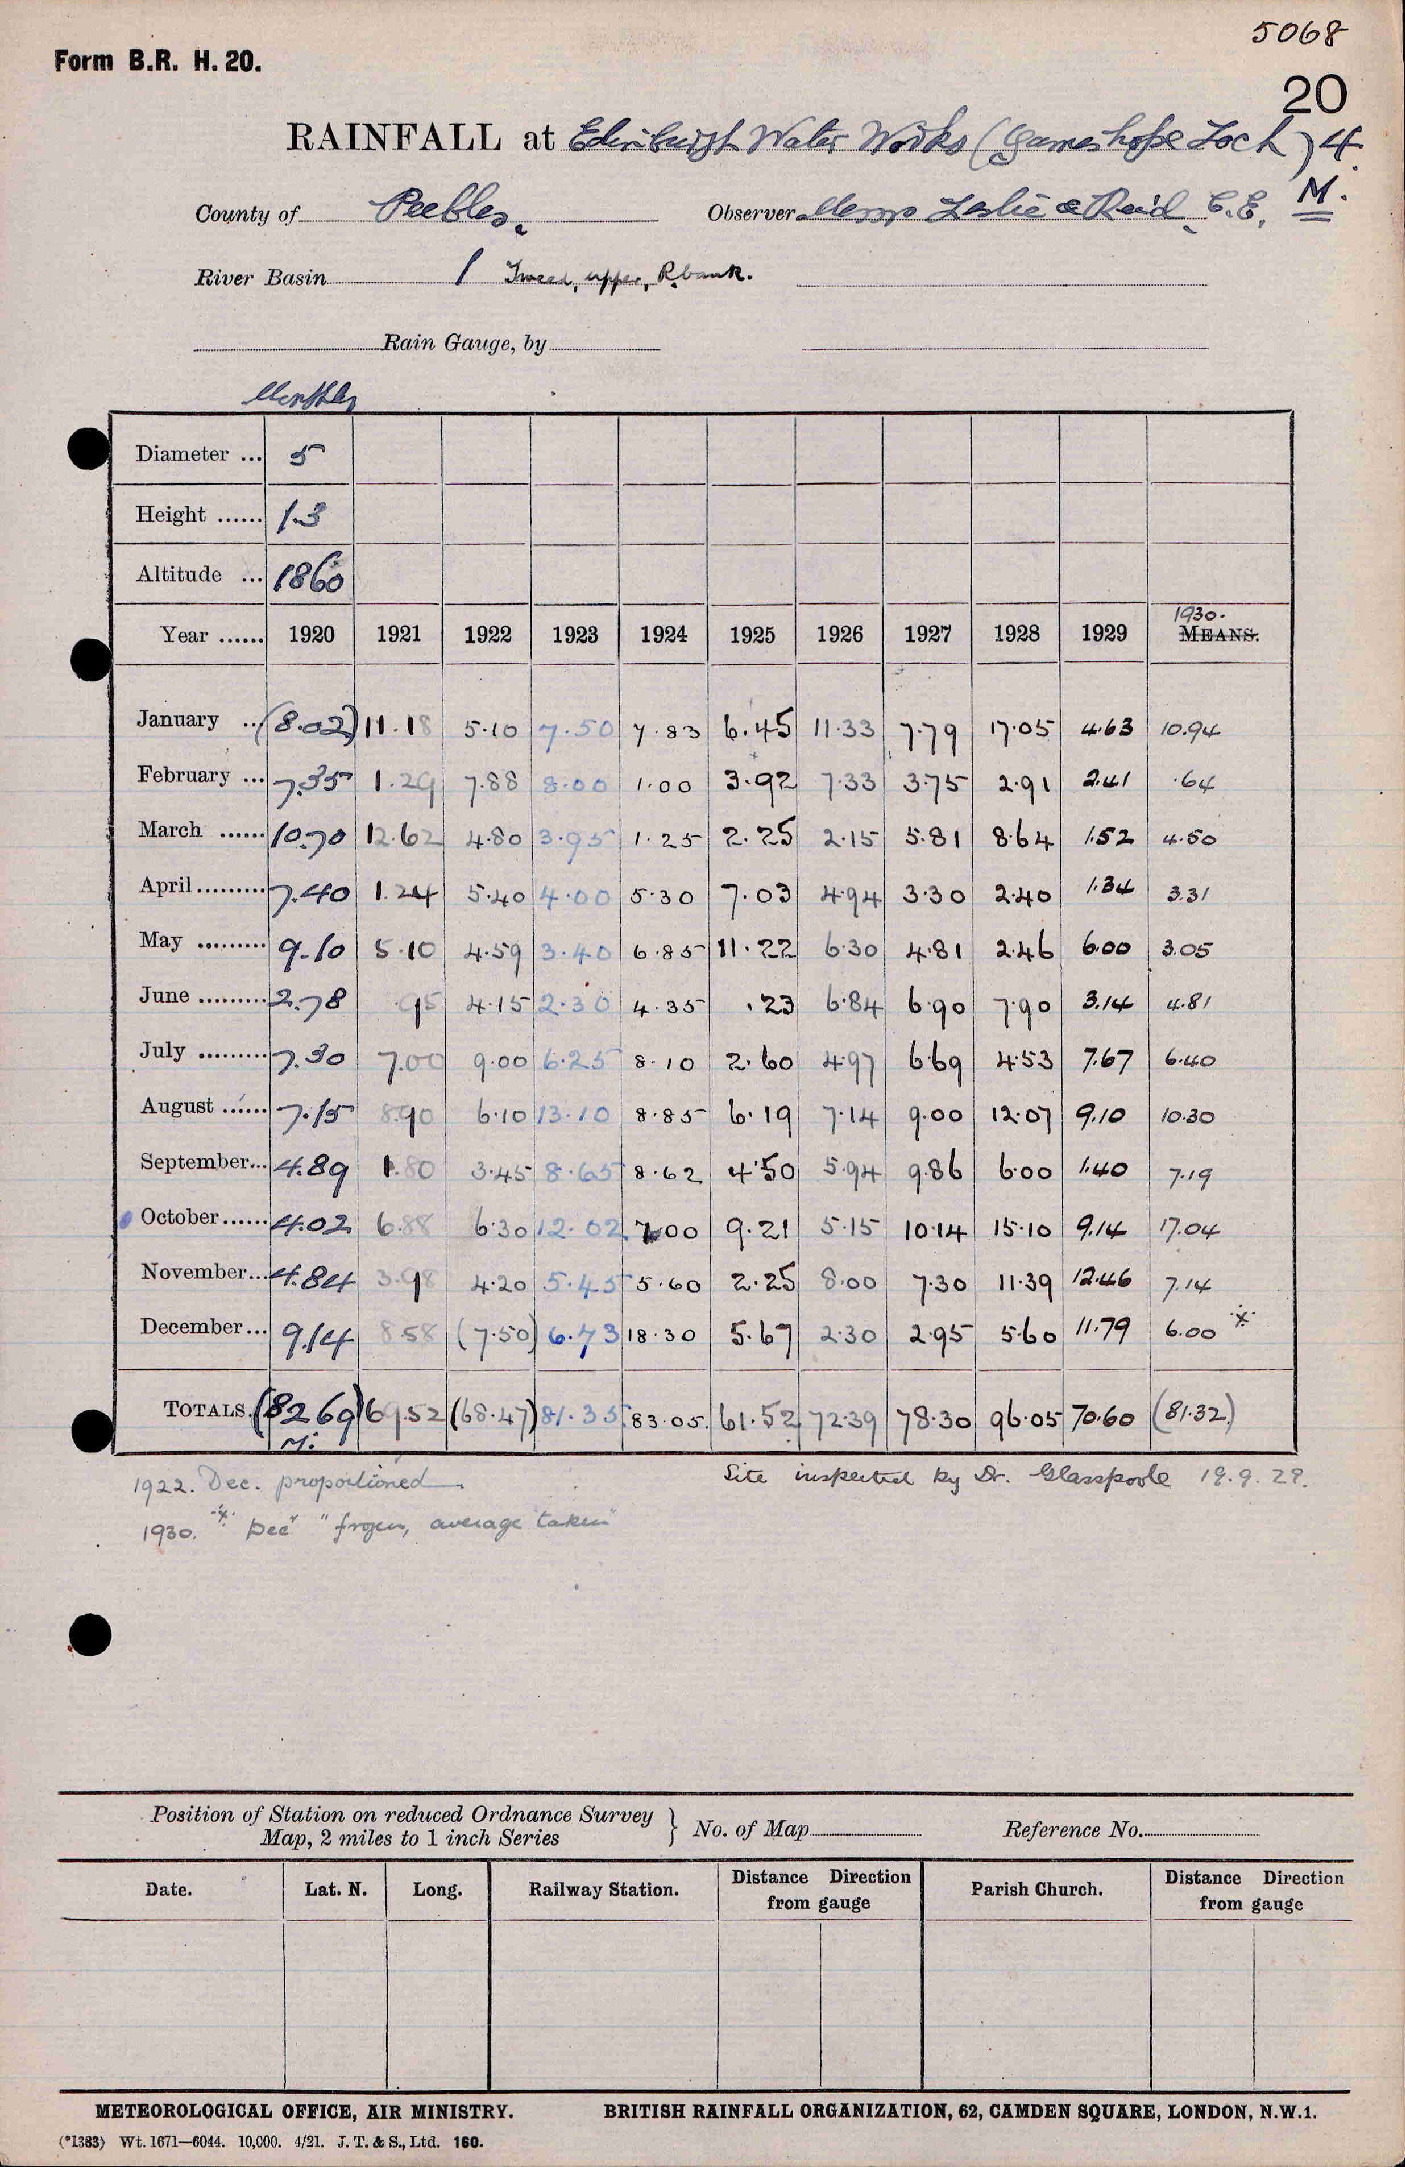 5068
Form B.R. H. 20.
20
RAINFALL at Edinburgh Water Works (Gameshope Loch) 4.
County of Peebles. Observer Messrs Leslie & Reid, C.E. M.
River Basin 1 Tweed, upper, R. bank.
Rain Gauge, by
Monthly
Diameter ... 5
Height ...... 1.3
Altitude ... 1860
1930.
Year ...... 1920 1921 1922 1923 1924 1925 1926 1927 1928 1929 MEANS.
January ... (8.02) 11.18 5.10 7.50 7.83 6.45 11.33 7.79 17.05 4.63 10.94
February ... 7.35 1.29 7.88 8.00 1.00 3.92 7.33 3.75 2.91 2.41 .64
March ...... 10.70 12.62 4.80 3.95 1.25 2.25 2.15 5.81 8.64 1.52 4.50
April......... 7.40 1.24 5.40 4.00 5.30 7.03 4.94 3.30 2.40 1.34 3.31
May ......... 9.10 5.10 4.59 3.40 6.85 11.22 6.30 4.81 2.46 6.00 3.05
June ......... 2.78 .95 4.15 2.30 4.35 .23 6.84 6.90 7.90 3.14 4.81
July ......... 7.30 7.00 9.00 6.25 8.10 2.60 4.97 6.69 4.53 7.67 6.40
August ...... 7.15 8.90 6.10 13.10 8.85 6.19 7.14 9.00 12.07 9.10 10.30
September... 4.89 1.80 3.45 8.65 8.62 4.50 5.94 9.86 6.00 1.40 7.19
October...... 4.02 6.88 6.30 12.02 7.00 9.21 5.15 10.14 15.10 9.14 17.04
November... 4.84 3.98 4.20 5.45 5.60 2.25 8.00 7.30 11.39 12.46 7.14
December... 9.14 8.58 (7.50) 6.73 18.30 5.67 2.30 2.95 5.60 11.79 6.00 *
TOTALS. (82.69) 69.52 (68.47) 81.35 83.05 61.52 72.39 78.30 96.05 70.60 (81.32)
M.
1922. Dec. proportioned. Site inspected by Dr. Glasspoole 19.9.29.
1930. * Dec "frozen, average taken"
Position of Station on reduced Ordnance Survey
Map, 2 miles to 1 inch Series } No. of Map Reference No.
Date. Lat. N. Long. Railway Station. Distance Direction from gauge Parish Church. Distance Direction from gauge
METEOROLOGICAL OFFICE, AIR MINISTRY. BRITISH RAINFALL ORGANIZATION, 62, CAMDEN SQUARE, LONDON, N.W.1.
(*1383) Wt. 1671—6044. 10,000. 4/21. J. T. & S., Ltd. 160.